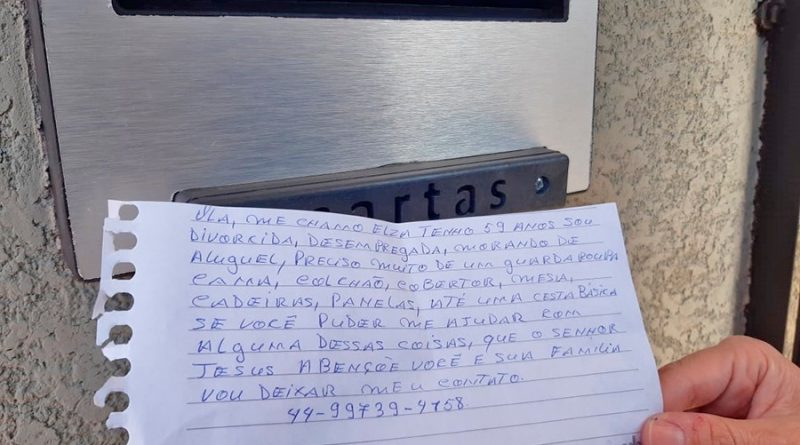 cartas
OLA, ME CHAMO ELZA TENHO 59 ANOS SOU
DIVORCIDA, DESEMPREGADA, MORANDO DE
ALUGUEL, PRECISO MUITO DE UM GUARDA ROUPA
CAMA, COLCHÃO, COBERTOR, MESA,
CADEIRAS, PANELAS, ATÉ UMA CESTA BÁSICA
SE VOCÊ PUDER ME AJUDAR COM
ALGUMA DESSAS COISAS, QUE O SENHOR
JESUS ABENÇOE VOCÊ E SUA FAMILIA
VOU DEIXAR MEU CONTATO.
44-99739-4758